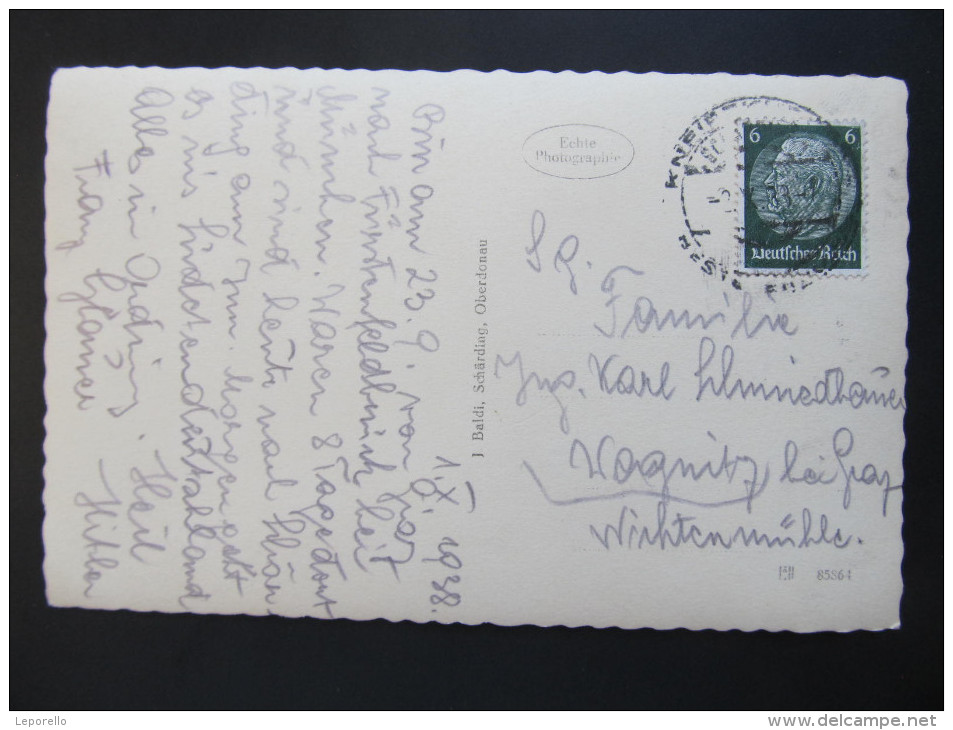 1. X. 1938.
Bin am 23. 9. von Graz
nach Fürstenfeldbruck bei
München. Waren 8 Tage dort
und sind heute nach Schär-
ding am Inn. Morgen geht
es ins Sudetendeutschland
Alles in Ordnung. Heil
Hitler
Franz
Echte
Photographie
J. Baldi, Schärding, Oberdonau
6 6
Deutsches Reich
KNEIPP
S. g.
Familie
Ing. Karl Schmiedbauer
Wagnitz bei Graz
Wichtenmühle.
85864
Leporello
www.delcampe.net